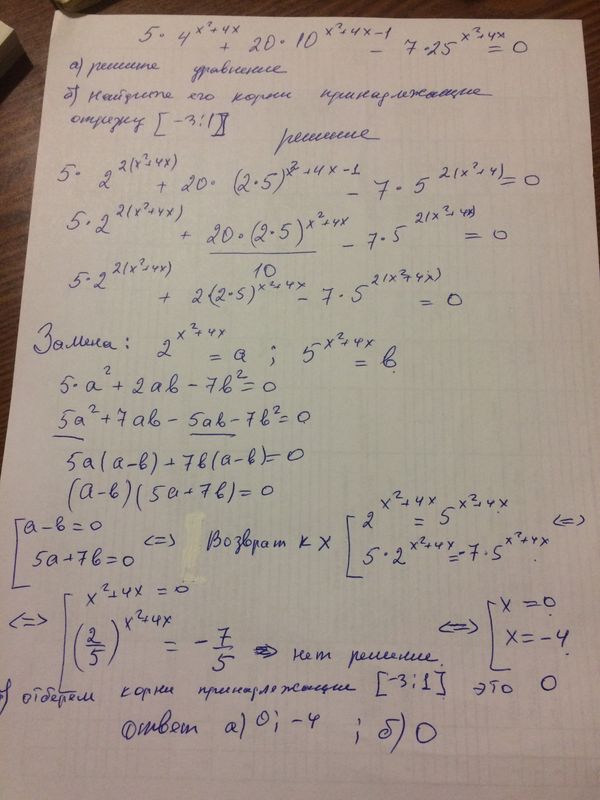 5·4^(x²+4x) + 20·10^(x²+4x-1) - 7·25^(x²+4x) = 0
а) решите уравнение
б) Найдите его корни принадлежащие
отрезку [-3;1]
решение
5·2^(2(x²+4x)) + 20·(2·5)^(x²+4x-1) - 7·5^(2(x²+4)) = 0
5·2^(2(x²+4x)) + 20·(2·5)^(x²+4x)/10 - 7·5^(2(x²+4x)) = 0
5·2^(2(x²+4x)) + 2(2·5)^(x²+4x) - 7·5^(2(x²+4x)) = 0
Замена: 2^(x²+4x) = a ; 5^(x²+4x) = в
5·a² + 2aв - 7в² = 0
5a² + 7aв - 5aв - 7в² = 0
5a(a-в) + 7в(a-в) = 0
(a-в)(5a+7в) = 0
[ a-в=0 ; 5a+7в=0 <=> Возврат к x [ 2^(x²+4x) = 5^(x²+4x) ; 5·2^(x²+4x) = -7·5^(x²+4x) <=>
<=> [ x²+4x = 0 ; (2/5)^(x²+4x) = -7/5 => нет решение <=> [ x = 0 ; x = -4
б) отберем корни принадлежащие [-3;1] это 0
Ответ а) 0; -4 ; б) 0